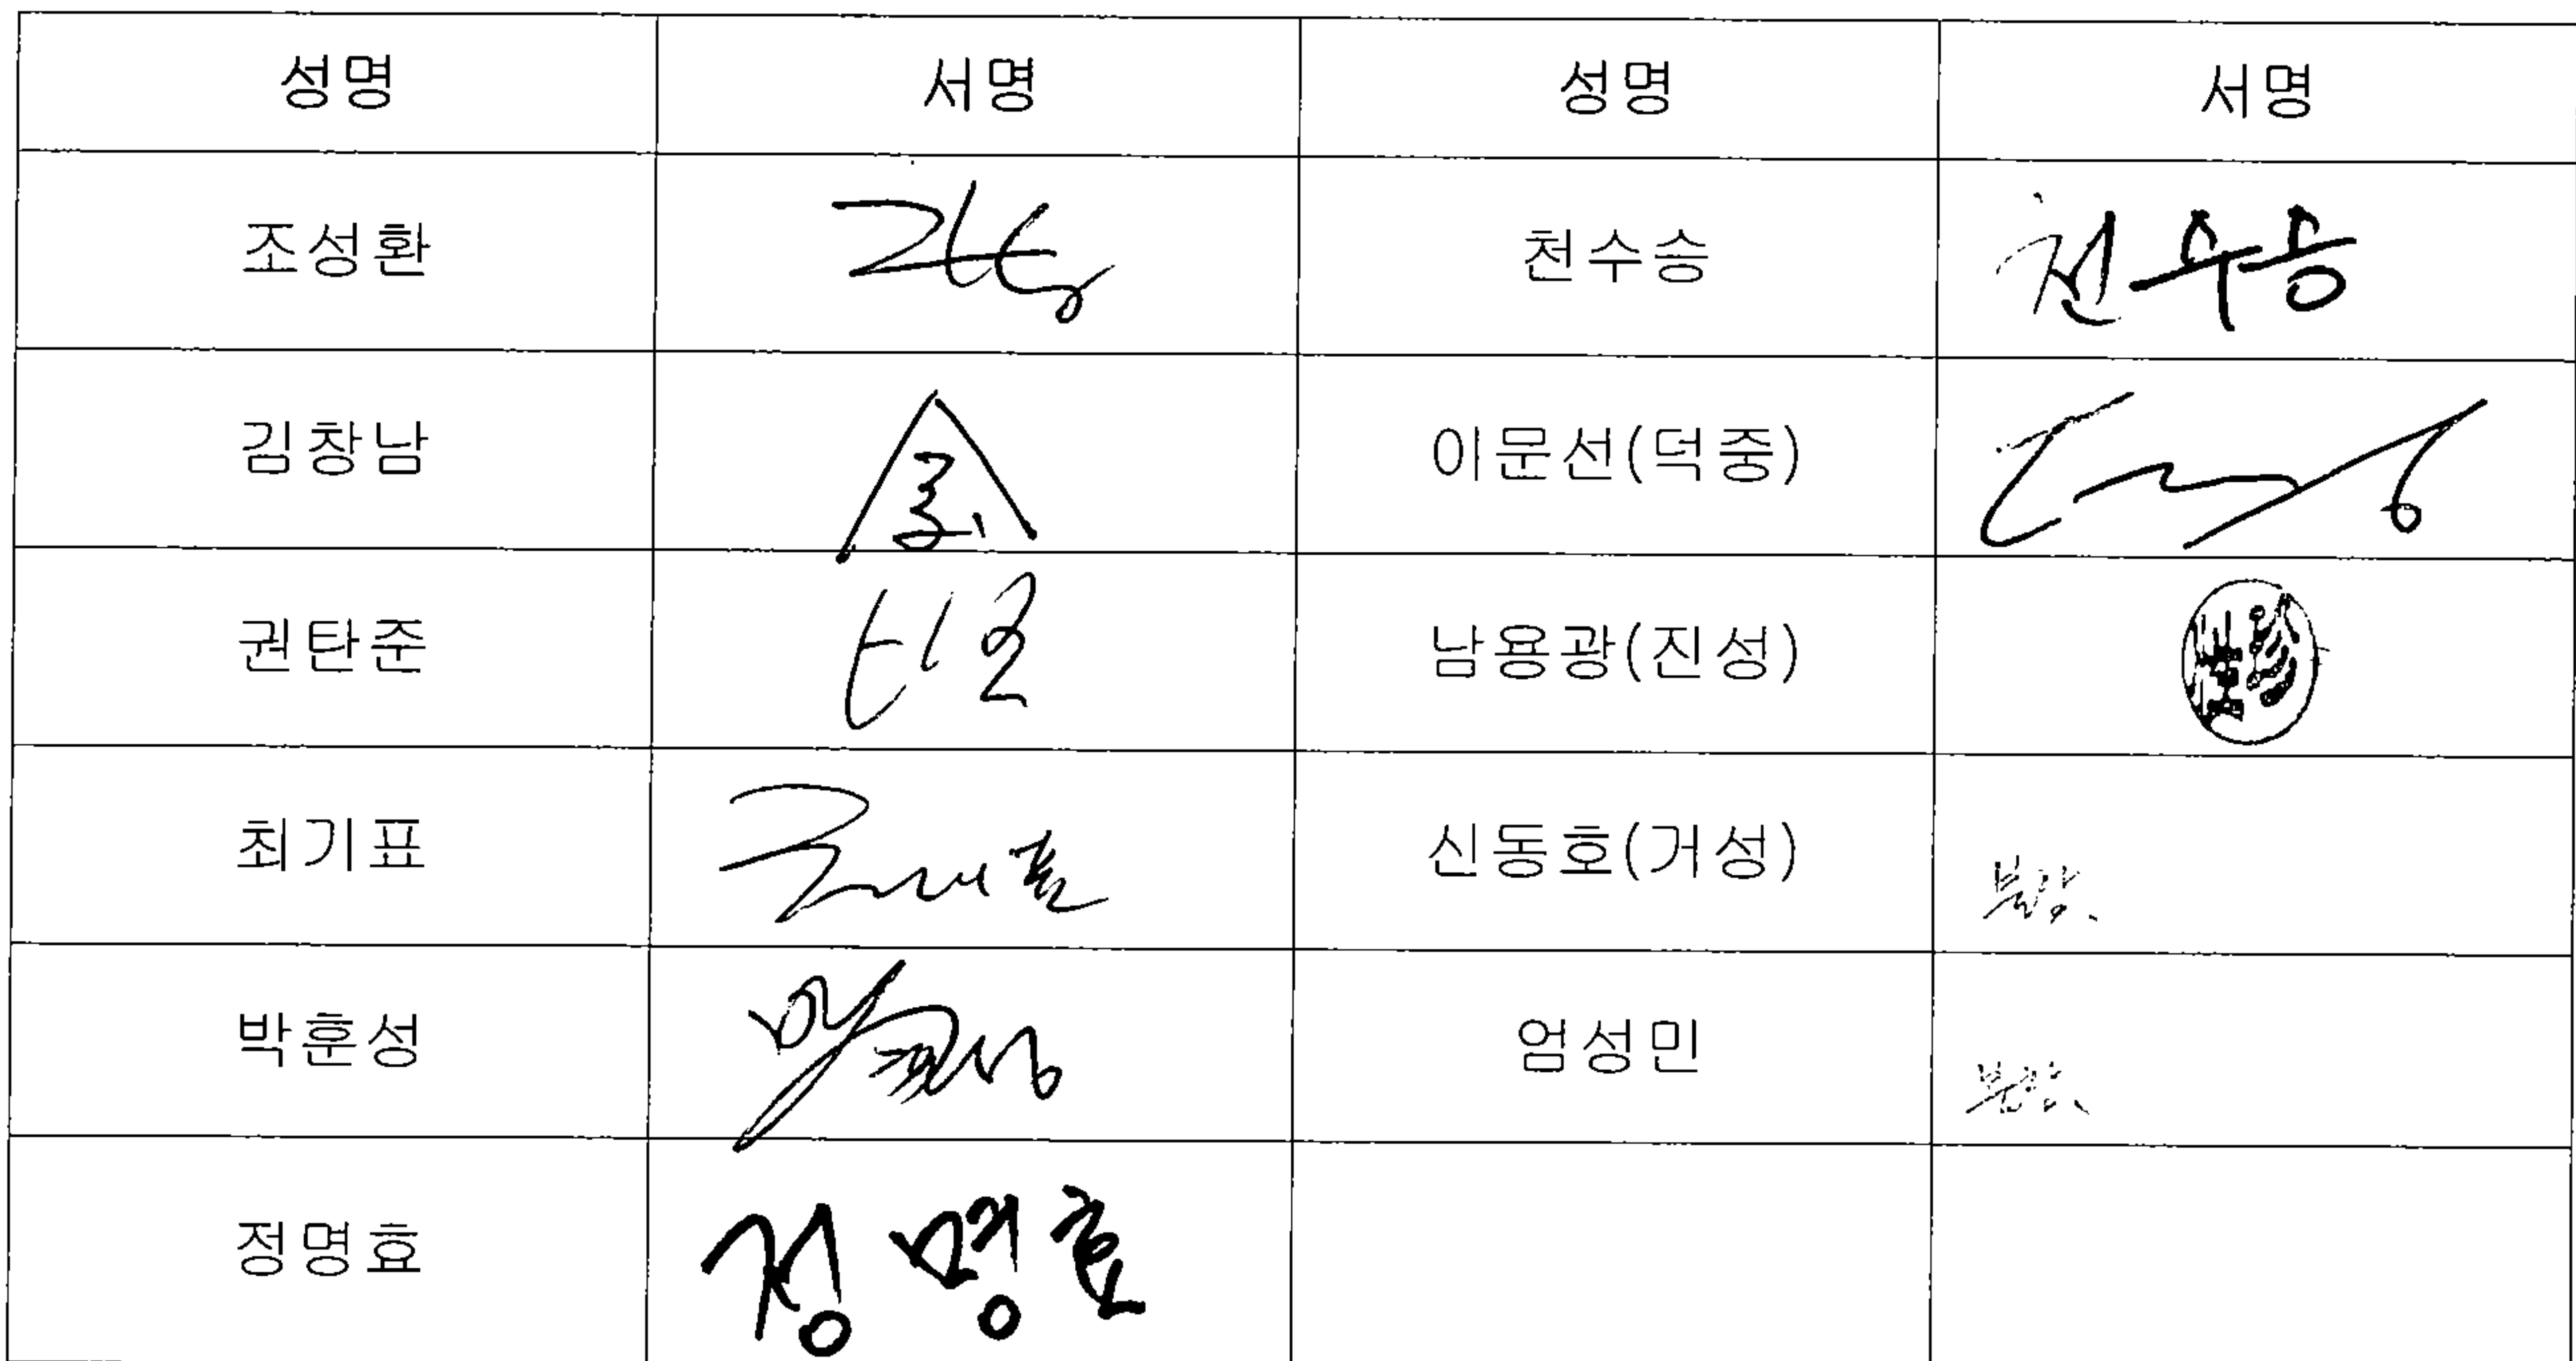 성명 서명 성명 서명
조성환 천수승 천수승
김창남 이문선(덕중)
권탄준 탄준 남용광(진성)
최기표 신동호(거성) 불참
박훈성 박훈성 엄성민 불참
정명효 정명효